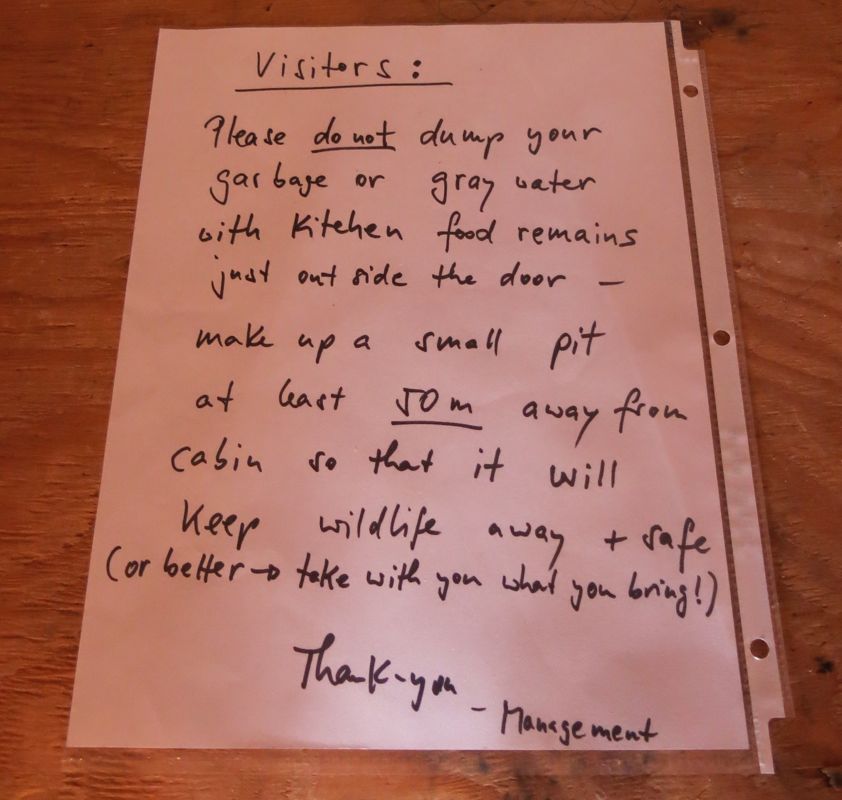 Visitors:
Please do not dump your
garbage or gray water
with Kitchen food remains
just outside the door –
make up a small pit
at least 50m away from
cabin so that it will
Keep wildlife away + safe
(or better → take with you what you bring!)
Thank-you
- Management